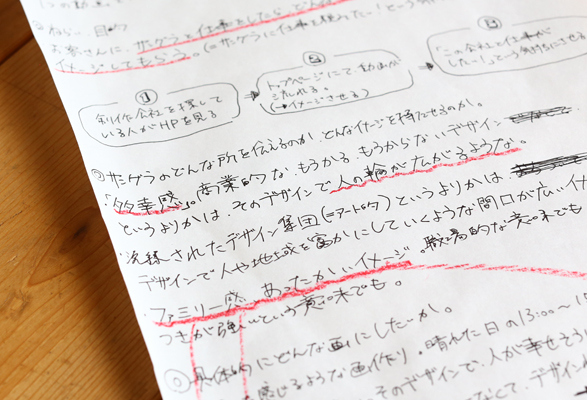 ねらい、目的
お客さんに、サングラと仕事をしたら、どん
イメージしてもらう。(=サングラに仕事を頼みたい!という気
①
制作会社を探して
いる人がHPを見る
②
トップページにて動画が
流れる。
(→イメージさせる)
③
「この会社と仕事が
したい!」っていう気持ちにさせる
サングラのどんな所を伝えるのか どんなイメージを持たせるのか。
「多幸感」。商業的な、もうかる、もうからないデザイン
というよりかは、そのデザインで人の輪が広がるような。
・洗練されたデザイン集団(=アート的)というよりかは
デザインで人や地域を豊かにしていくような間口が広い、イ
・ファミリー感、あったかいイメージ。職場的な意味でも
つきが強いという意味でも。
具体的にどんな画にしたいか。
感じるような画作り・晴れた日の13:00〜1
そのデザインで、人が幸せそう
なくて、デザイ